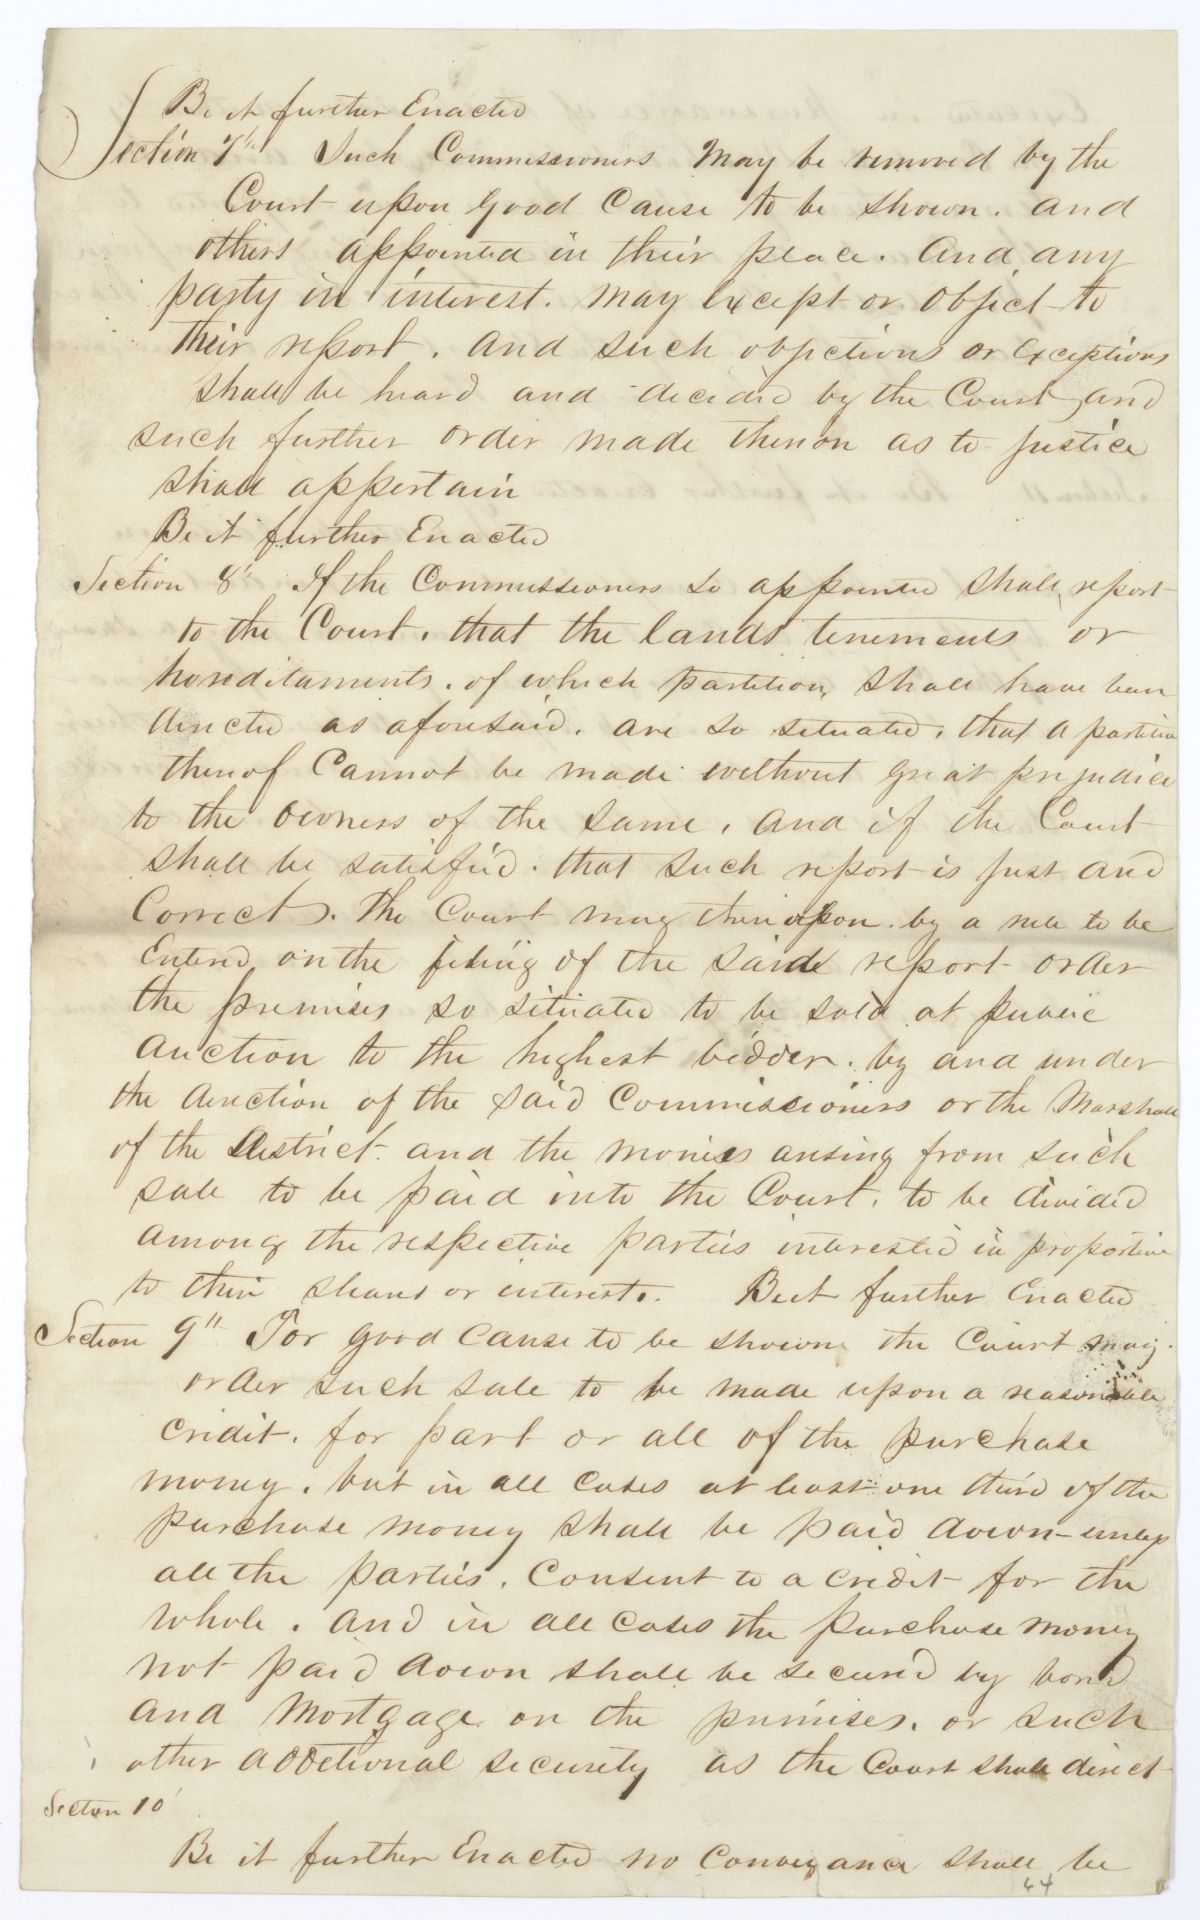 Be it further Enacted
Section 7th Such Commissioners May be removed by the
Court upon good Cause to be shown. and
others appointed in their place. And any
party in interest. may Except or Object to
their report. And such objections or Exceptions
shall be heard and decided by the Court and
such further order made thereon as to justice
shall appertain
Be it further Enacted
Section 8th If the Commissioners so appointed shall report
to the Court, that the lands tenements or
hereditaments. of which partition, shall have been
directed as aforesaid. are so situated, that a partition
thereof Cannot be made without great prejudice
to the owners of the same, And if the Court
shall be satisfied. that such report is just and
Correct. The Court may thereupon. by a rule to be
Entered on the filing of the said report order
the premises so situated to be sold at public
Auction to the highest bidder. by and under
the direction of the said Commissioners or the Marshall
of the District and the monies arising from such
sale to be paid into the Court, to be divided
among the respective parties interested in proportion
to their shares or interests. Be it further Enacted
Section 9th For good cause to be shown the Court may
order such sale to be made upon a reasonable
credit. for part or all of the purchase
money, but in all cases at least one third of the
purchase money shall be paid down - unless
all the parties. Consent to a credit for the
whole. And in all cases the purchase money
not paid down shall be secured by bond
and Mortgage on the premises. or such
other additional security as the Court shall direct
Section 10
Be it further Enacted no Conveyance shall be
64